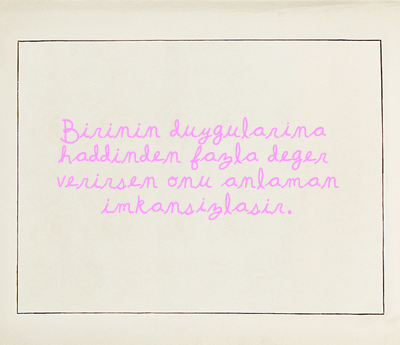 Birinin duygularina
haddinden fazla deger
verirsen onu anlaman
imkansizlasir.